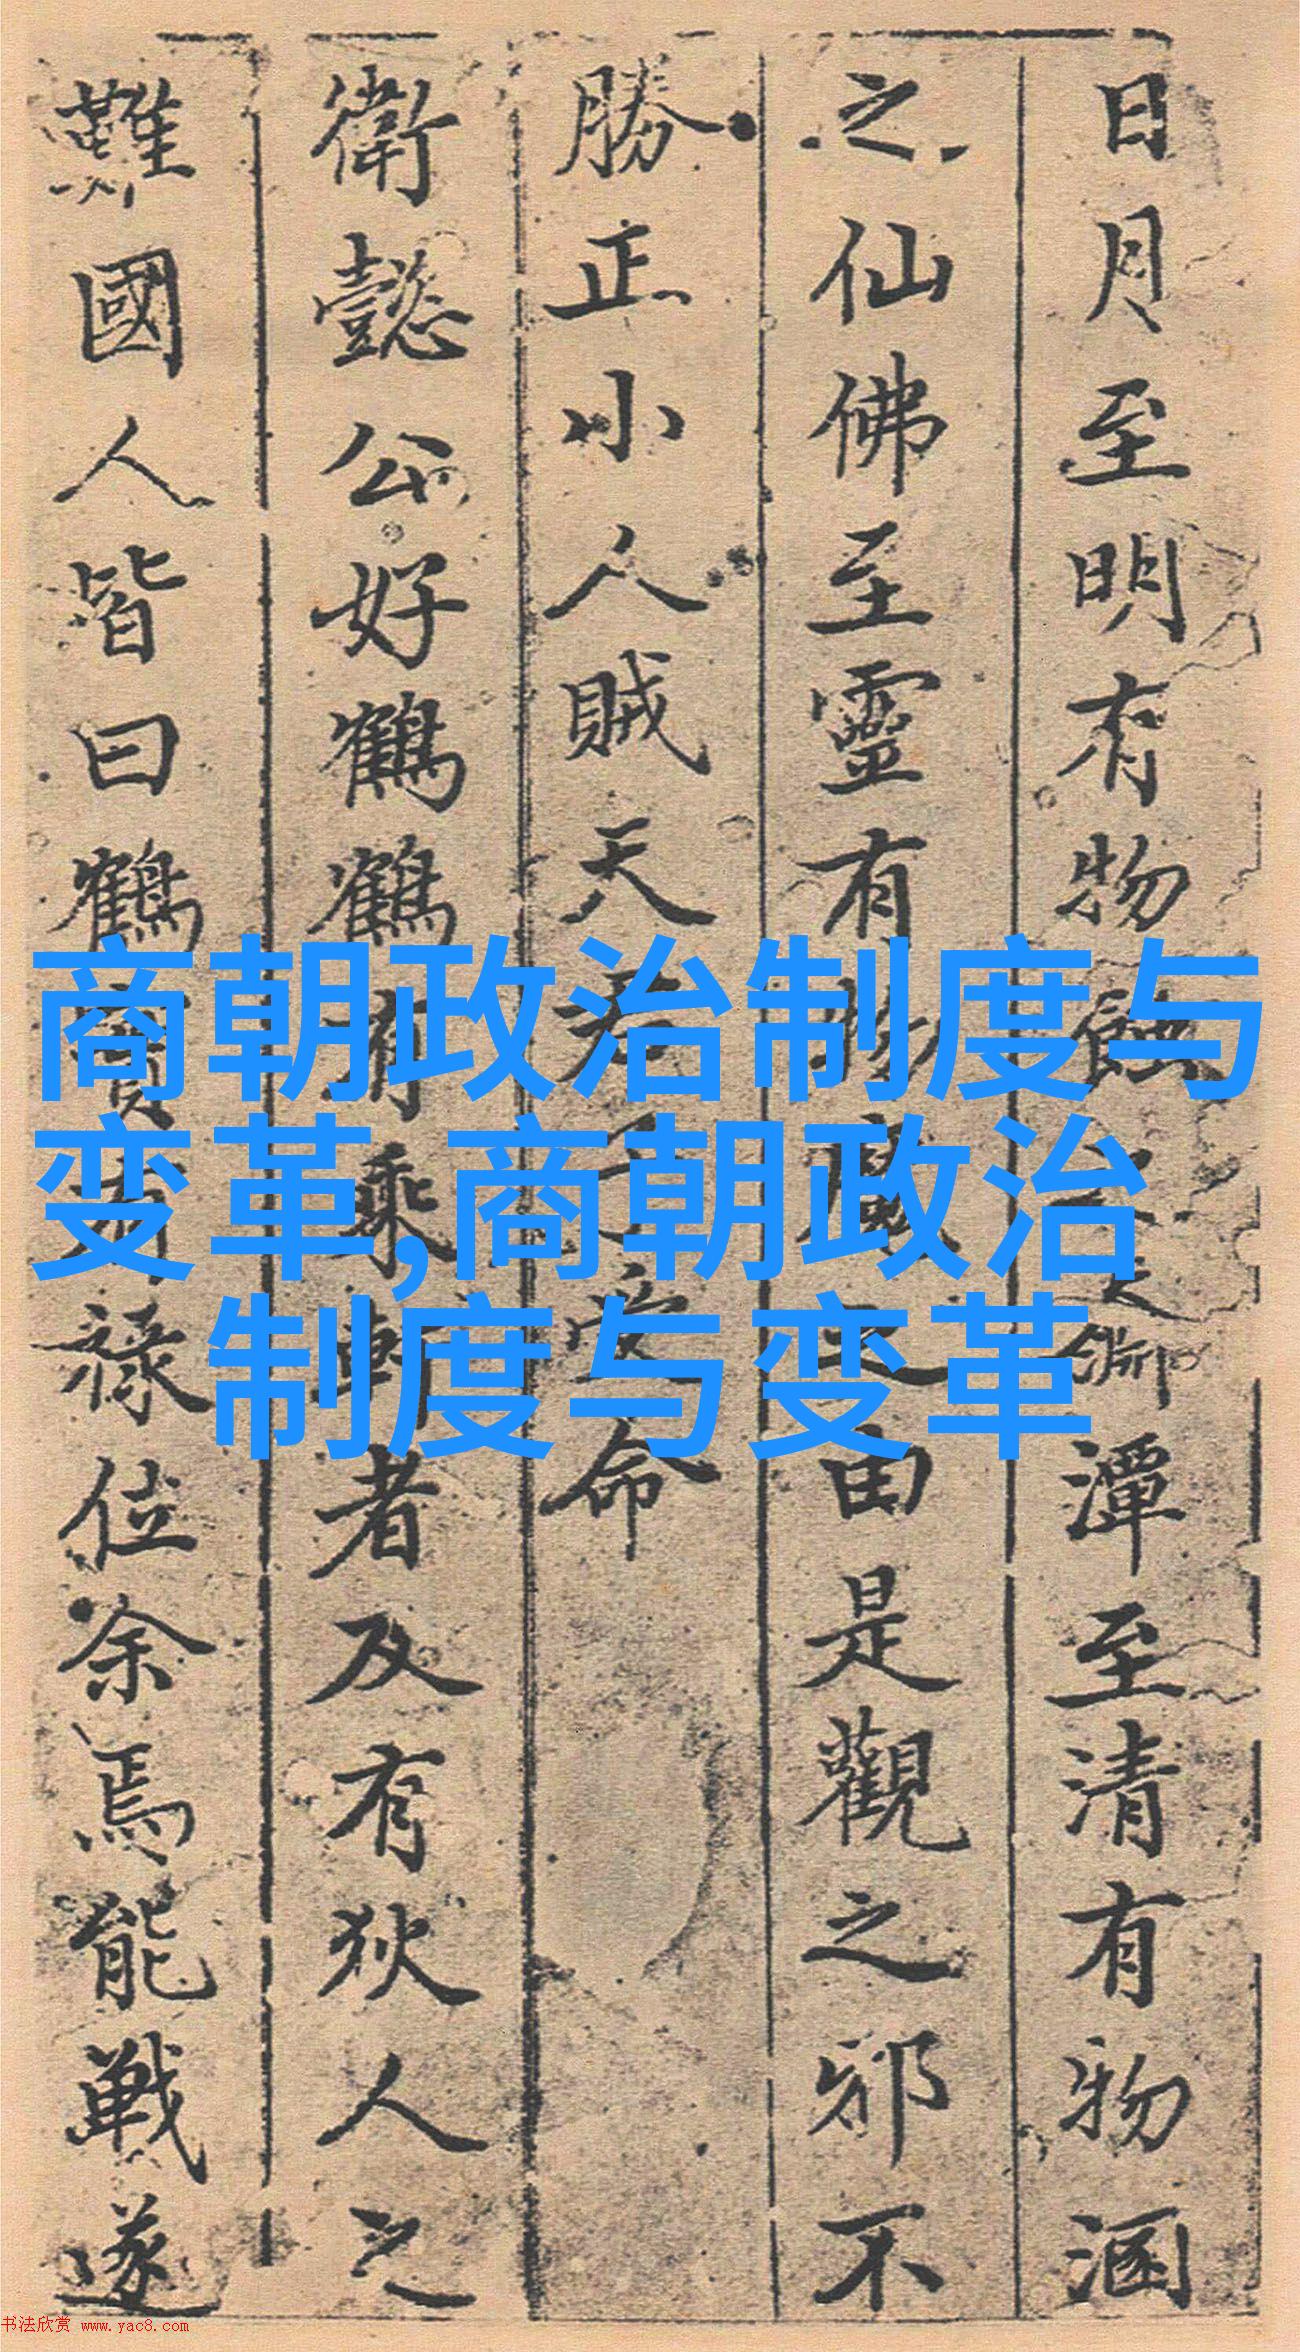 日月至明有物蝕之天淵潭至清有物涵
之仙佛至靈有物魔之由是觀之邪不
勝正小人賊天君子受命
衛懿公好鶴鶴有乘軒者及有狄人之
難國人皆曰鶴實有祿位余焉能戰遂
商朝政治制度与
变革,商朝政治
制度与变革
书法欣赏 www.yac8.com